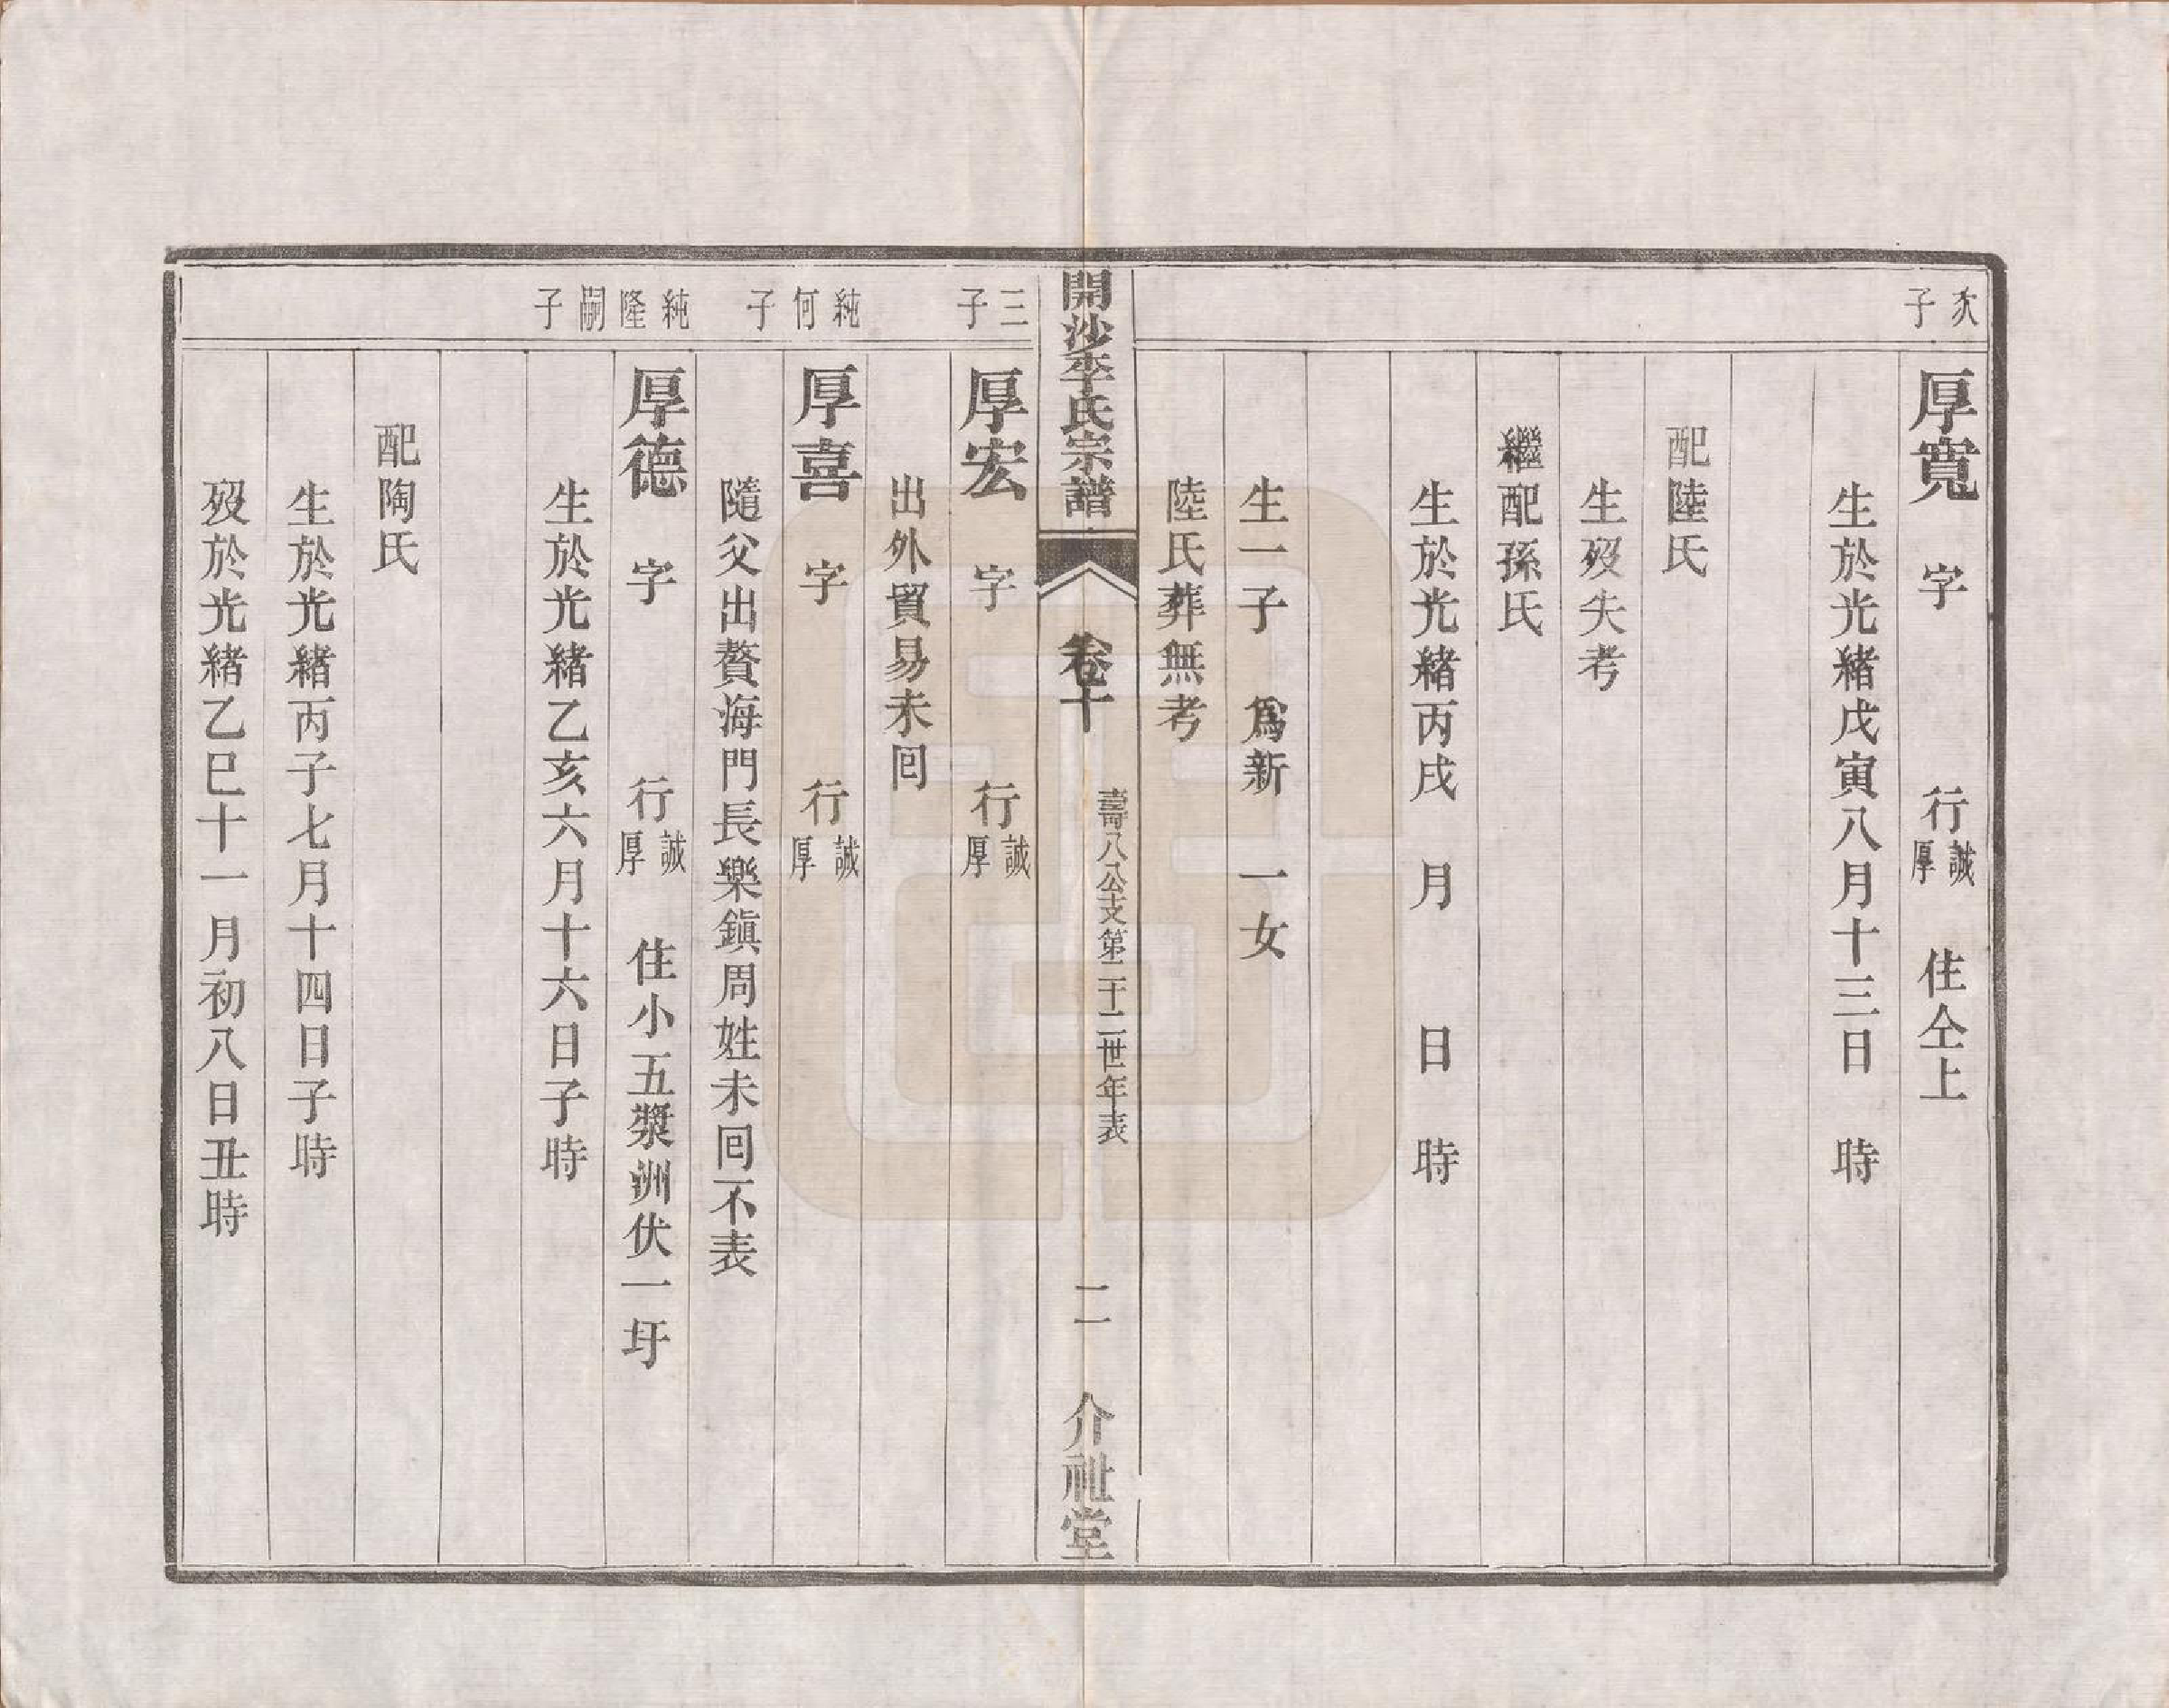 次子
厚寬　字　行誠厚　住仝上
生於光緒戊寅八月十三日　時
配陸氏
生歿失考
繼配孫氏
生於光緒丙戌　月　日　時
生一子　爲新　一女
陸氏葬無考
開沙李氏宗譜　卷十　壽八公支第二十二世年表　二　介祉堂
三子
厚宏　字　行誠厚
出外貿易未囘
純何子
厚喜　字　行誠厚
隨父出贅海門長樂鎭周姓未囘不表
純隆嗣子
厚德　字　行誠厚　住小五漿洲伏一圩
生於光緒乙亥六月十六日子時
配陶氏
生於光緒丙子七月十四日子時
歿於光緒乙巳十一月初八日丑時